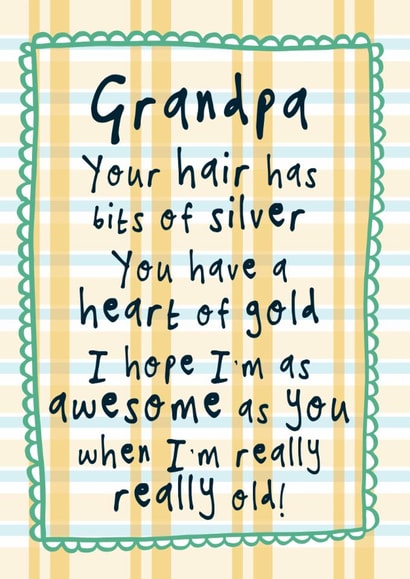 Grandpa
Your hair has
bits of silver
You have a
heart of gold
I hope I'm as
awesome as you
when I'm really
really old!